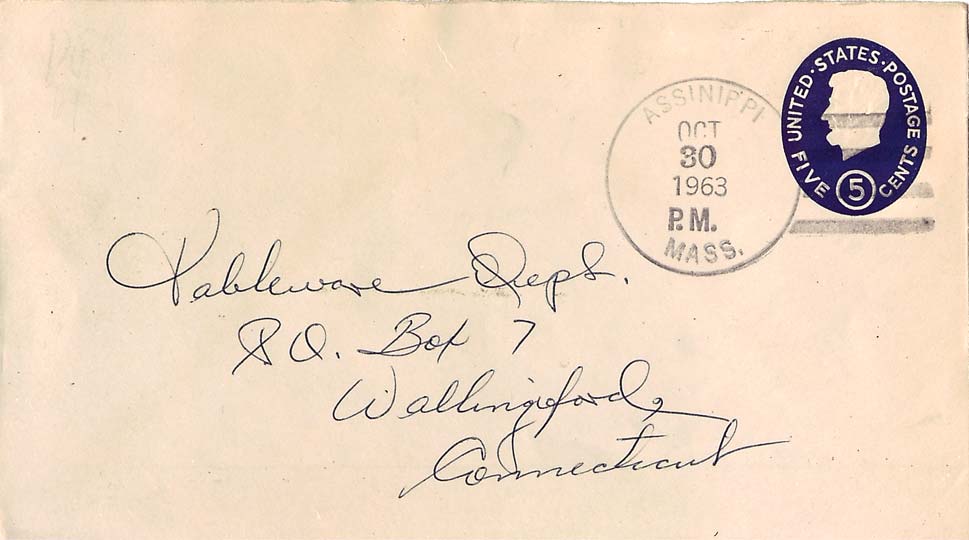 UNITED · STATES · POSTAGE
FIVE 5 CENTS
ASSINIPPI
OCT
30
1963
P.M.
MASS.
Tableware Dept.
P.O. Box 7
Wallingford,
Connecticut